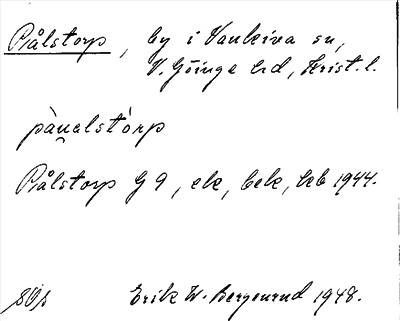 Pålstorp, by i Vankiva sn,
V. Göinge hd, Krist. l.
pàu̯alstórp
Pålstorp G 9, ek, bek, kb 1944.
Erik W. Bergenrud 1948.